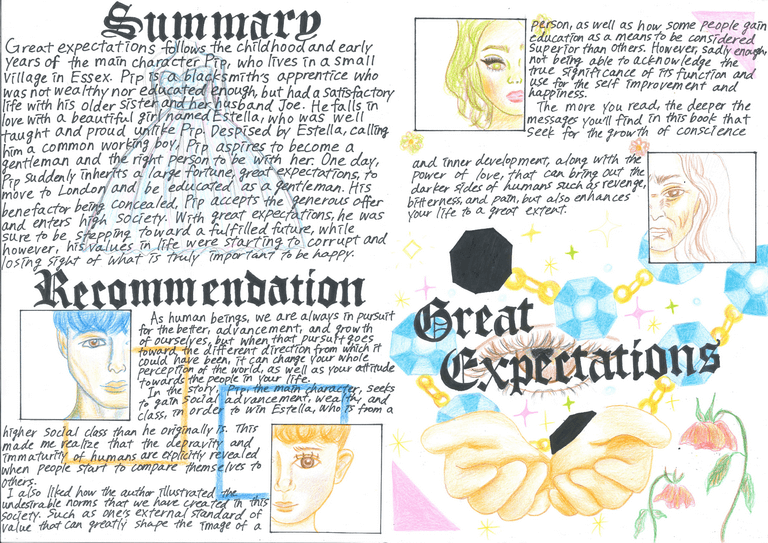 Summary
Great expectations follows the childhood and early
years of the main character Pip, who lives in a small
village in Essex. Pip is a blacksmith's apprentice who
was not wealthy nor educated enough, but had a satisfactory
life with his older sister and her husband Joe. He falls in
love with a beautiful girl named Estella, who was well
taught and proud unlike Pip. Despised by Estella, calling
him a common working boy, Pip aspires to become a
gentleman and the right person to be with her. One day,
Pip suddenly inherits a large fortune, great expectations, to
move to London and educated as a gentleman. His
benefactor being concealed, Pip accepts the generous offer
and enters high society. With great expectations, he was
sure to be stepping toward a fulfilled future, while
however, his values in life were starting to corrupt and
losing sight of what is truly important to be happy.
Recommendation
As human beings, we are always in pursuit
for the better, advancement, and growth
of ourselves, but when that pursuit goes
toward the different direction from which it
could have been, it can change your whole
perception of the world, as well as your attitude
towards the people in your life.
In the story, Pip, the main character, seeks
to gain social advancement, wealth, and
class, in order to win Estella, who is from a
higher social class than he originally is. This
made me realize that the depravity and
immaturity of humans are explicitly revealed
when people start to compare themselves to
others.
I also liked how the author illustrated the
undesirable norms that we have created in this
society. Such as one's external standard of
value that can greatly shape the image of a
person, as well as how some people gain
education as a means to be considered
superior than others. However, sadly enough,
not being able to acknowledge the
true significance of its function and
use for the self improvement and
happiness.
The more you read, the deeper the
messages you'll find in this book that
seek for the growth of conscience
and inner development, along with the
power of love, that can bring out the
darker sides of humans such as revenge,
bitterness, and pain, but also enhances
your life to a great extent.
Great
Expectations